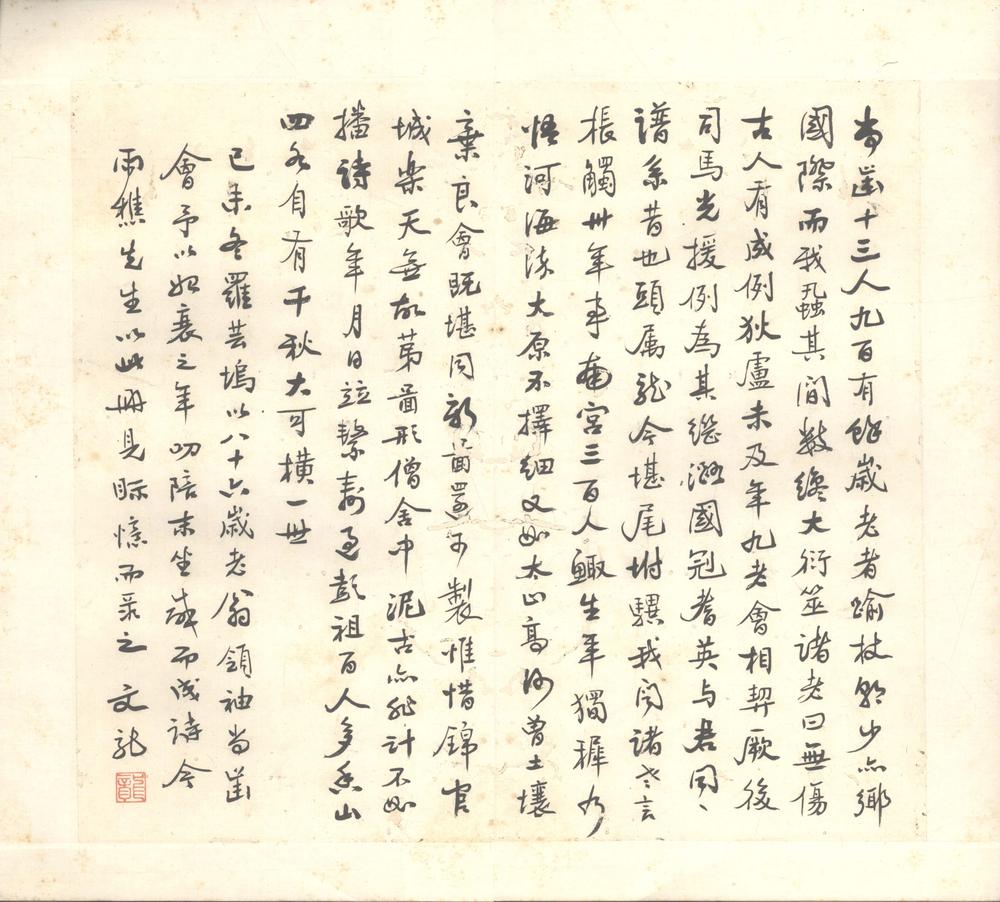 尚齒十三人九百有餘歲老者踰杖朝少亦鄉
國際而我蝨其間數纔大衍筮諸老曰無傷
古人有成例狄盧未及年九老會相契厥後
司馬光援例為其繼潞國冠耆英与君同〻
譜系昔也頭属龍今堪尾坿驥我聞諸老言
棖觸卅年事南宮三百人鯫生年獨穉乃
悟河海深大原不擇細又如太山高何曾土壤
棄良會既堪同新圖還可製惟惜錦官
城樂天無故第圖形僧舍中泥古亦非計不如
播詩歌年月日竝繫壽過彭祖百人多香山
四各自有千秋大可橫一世
己未冬羅芸塢以八十六歲老翁領袖尚齒
會予以始衰之年叨陪末坐感而成詩今
雨樵先生以此冊見眎憶而录之 文龍
龍